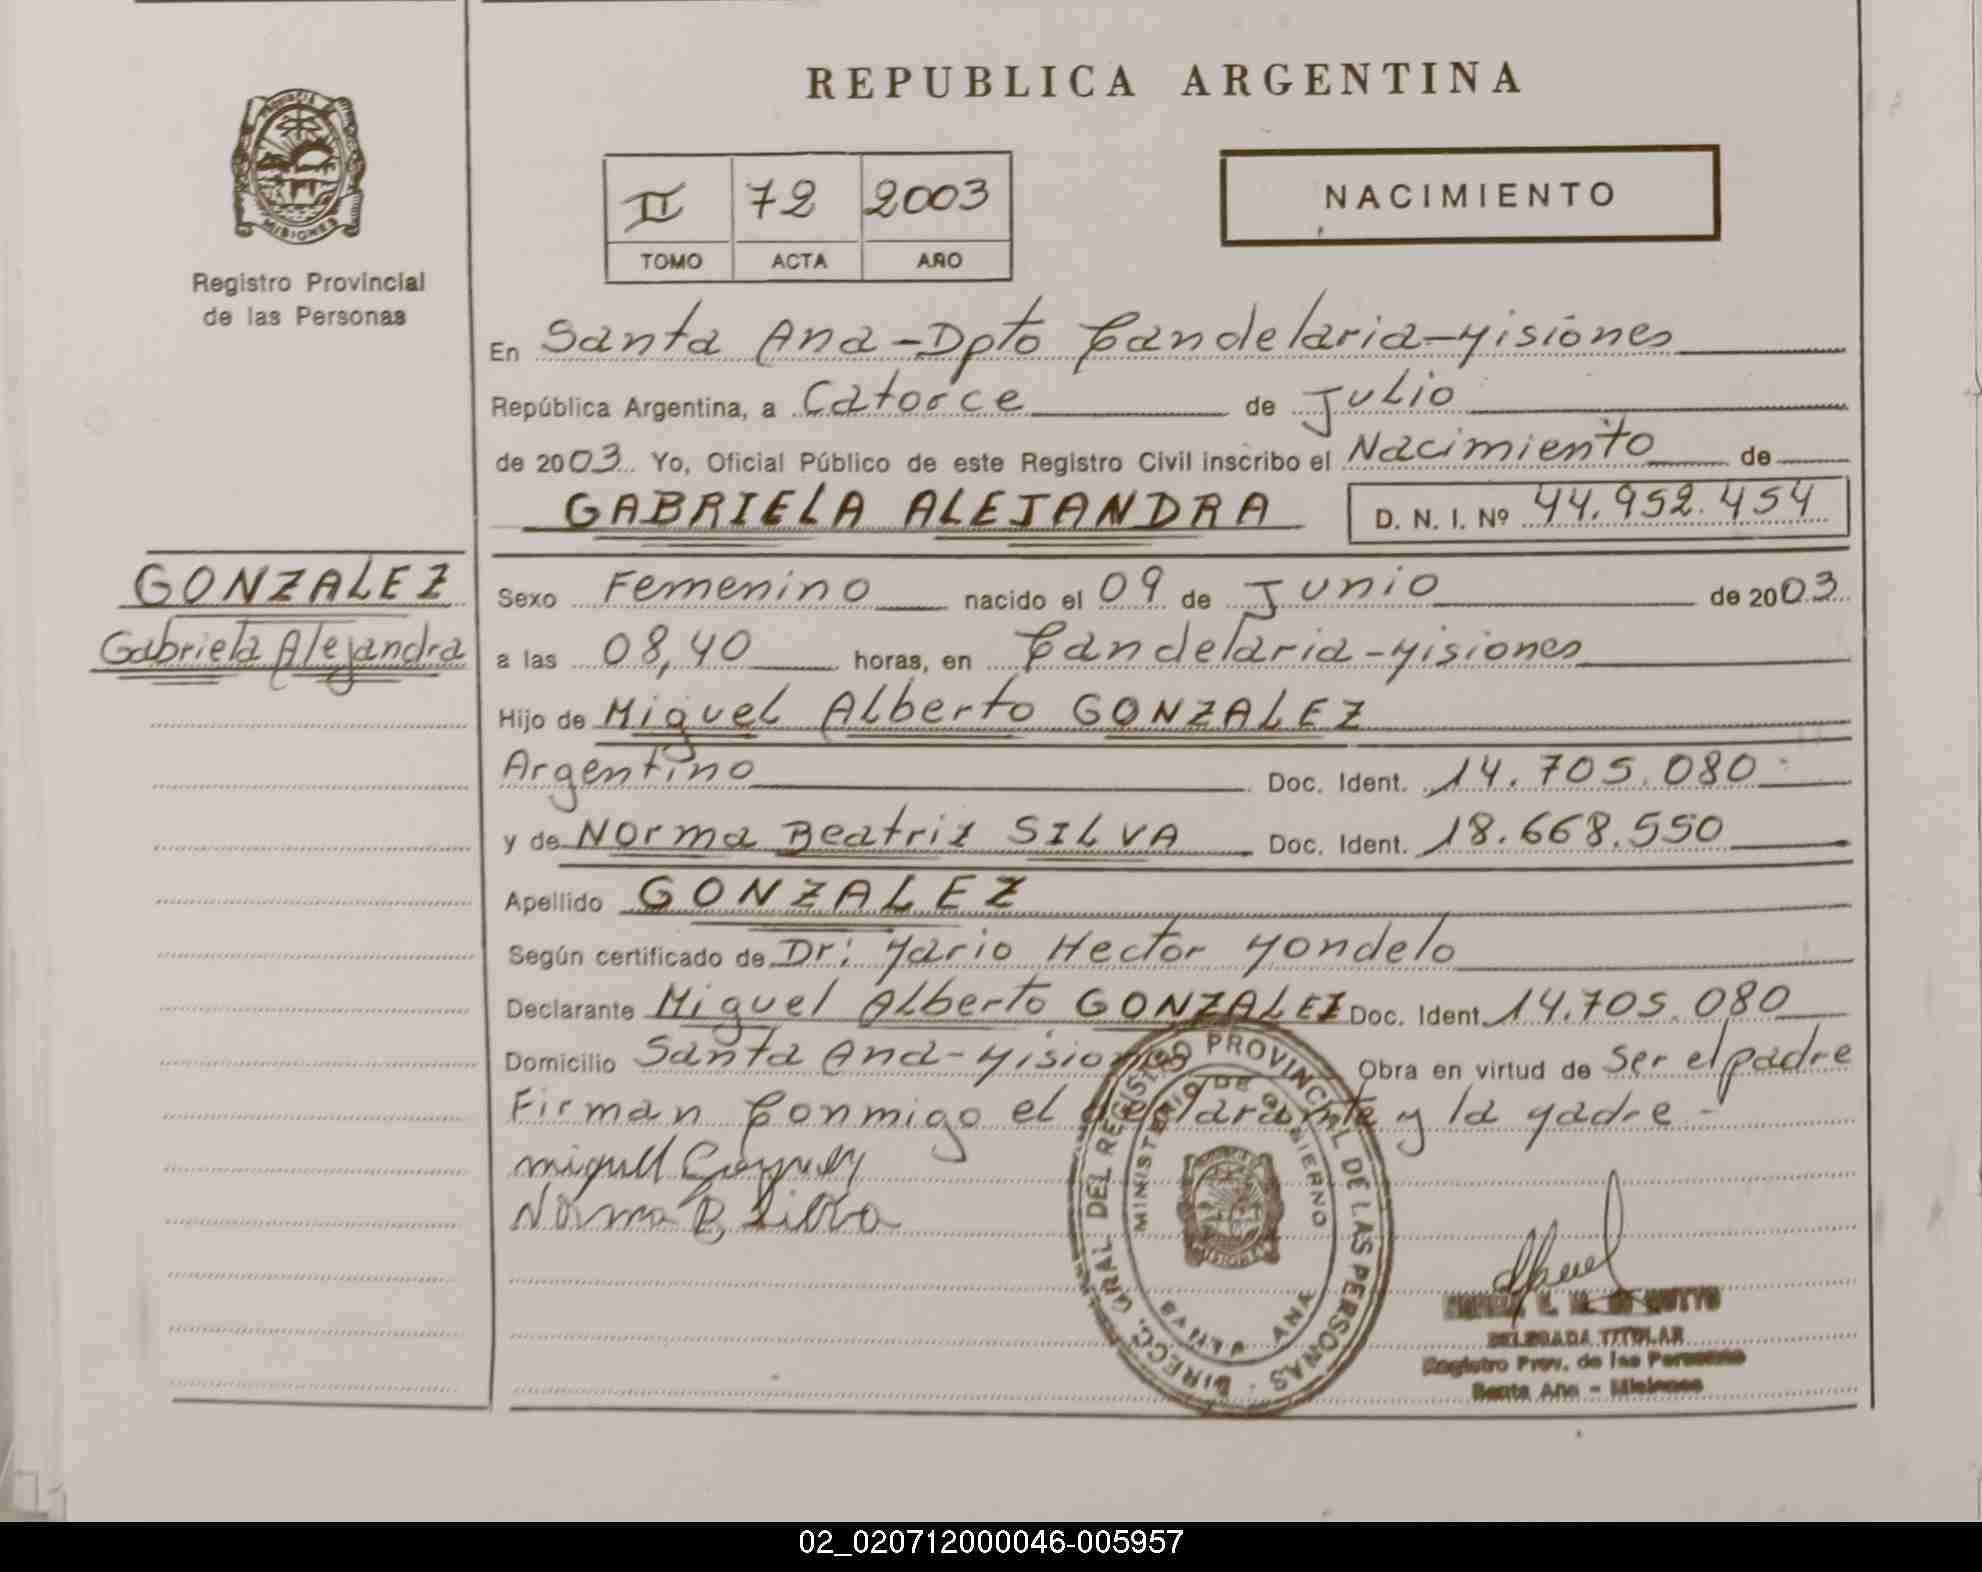 REPUBLICA ARGENTINA
PROVINCIA
MISIONES
Registro Provincial
de las Personas
II 72 2003
TOMO ACTA AÑO
NACIMIENTO
En Santa Ana-Dpto Candelaria-Misiones
República Argentina, a Catorce de Julio
de 2003 Yo, Oficial Público de este Registro Civil inscribo el Nacimiento de
GABRIELA ALEJANDRA D. N. I. Nº 44.952.454
GONZALEZ
Gabriela Alejandra
Sexo Femenino nacido el 09 de Junio de 2003
a las 08,40 horas, en Candelaria-Misiones
Hijo de Miguel Alberto GONZALEZ
Argentino Doc. Ident. 14.705.080
y de Norma Beatriz SILVA Doc. Ident. 18.668.550
Apellido GONZALEZ
Según certificado de Dr: Mario Hector Mondelo
Declarante Miguel Alberto GONZALEZ Doc. Ident. 14.705.080
Domicilio Santa Ana-Misiones Obra en virtud de Ser el padre
Firman Conmigo el declarante y la Madre -
Miguel
Norma B. Silva
DIRECC. GRAL DEL REGISTRO PROVINCIAL DE LAS PERSONAS
MINISTERIO DE GOBIERNO
ANA
DELEGADA TITULAR
Registro Prov. de las Personas
Santa Ana - Misiones
02_020712000046-005957